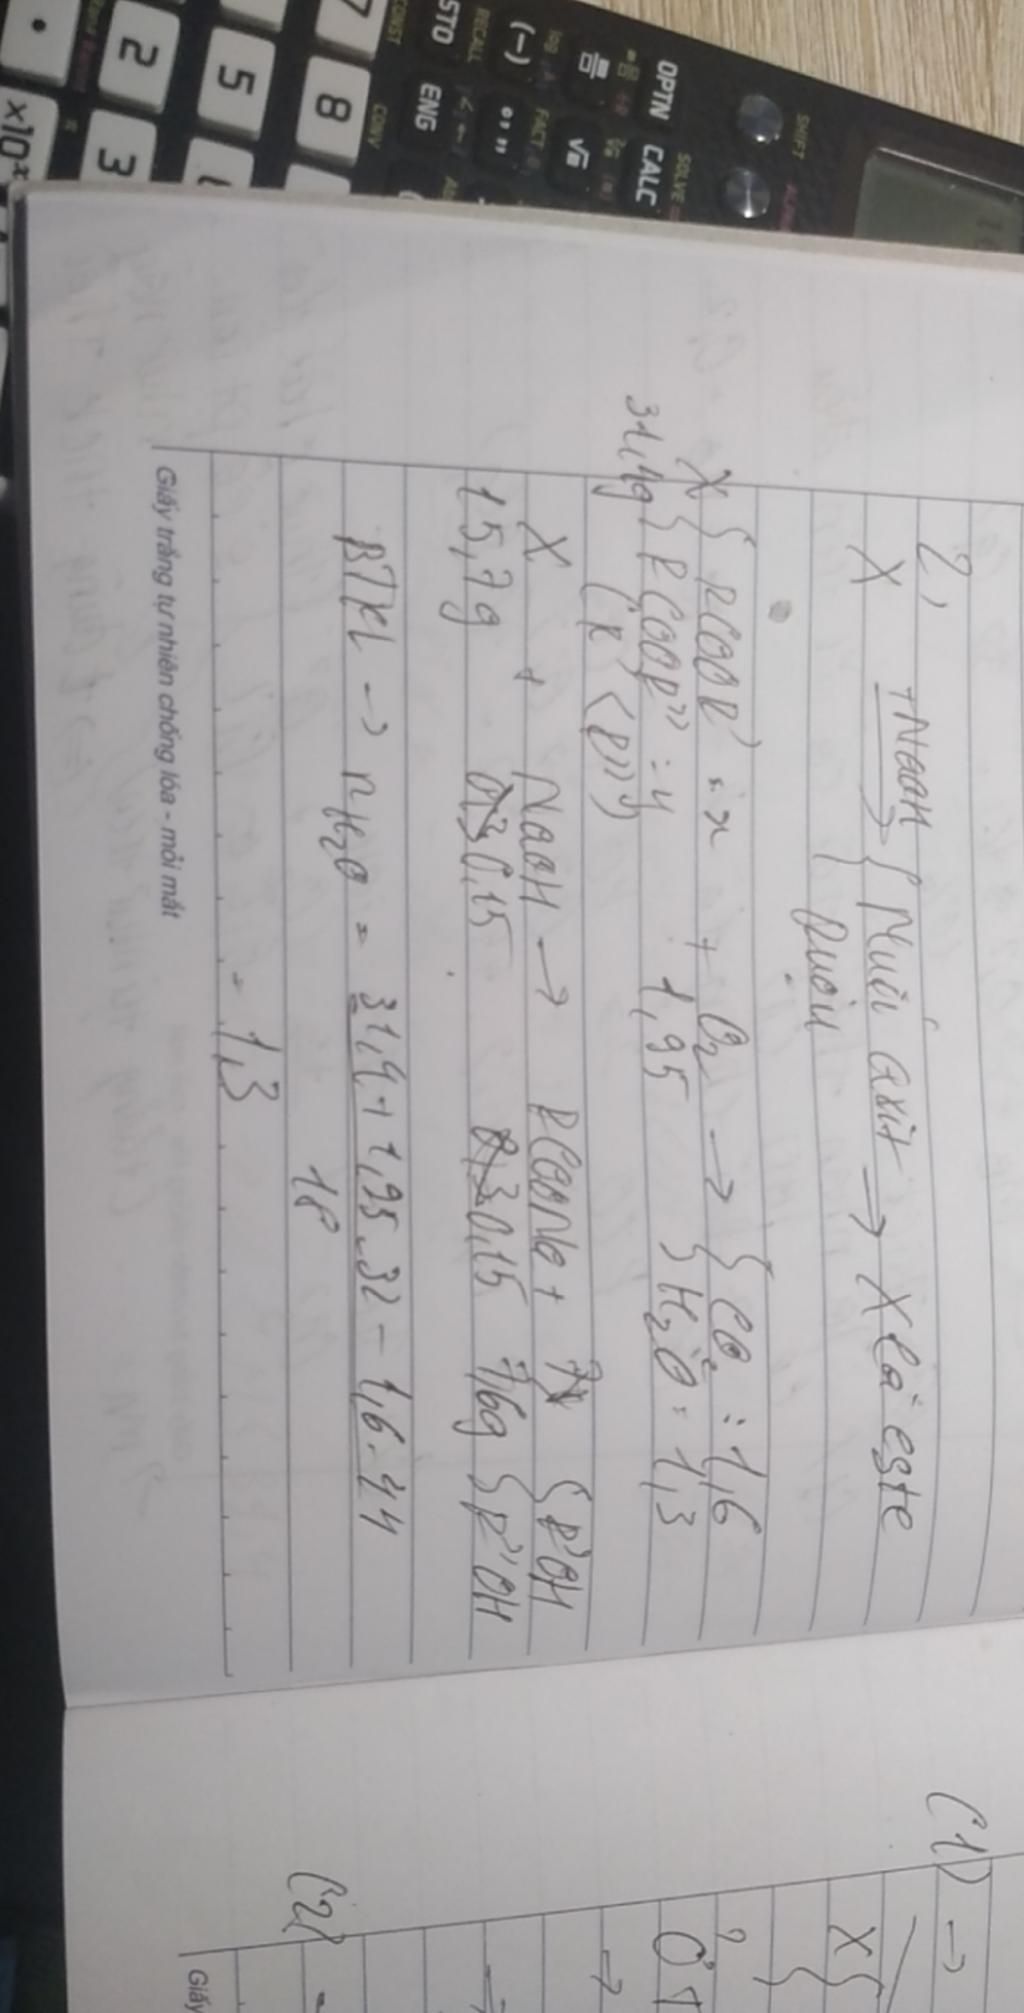 2,
X +NaOH→ { Muối axit → X là este
Rượu
X { RCOOR' : x + O2 → { CO2 : 1,6
31,4g { RCOOR'' : y 1,95 { H2O : 1,3
(R' < R'')
X + NaOH → RCOONa + { R'OH
15,7g 0,15 0,15 7,6g { R''OH
BTKL → nH2O = 31,4 + 1,95.32 - 1,6.44
18
= 1,3
Giấy trắng tự nhiên chống lóa - mỏi mắt
(1) →
X {
(2)
Giấy
SHIFT
OPTN CALC
SOLVE =
STO ENG
RECALL
(−) °’”
FACT
log
√
CONST CONV
7 8
5
2 3
• x10ˣ